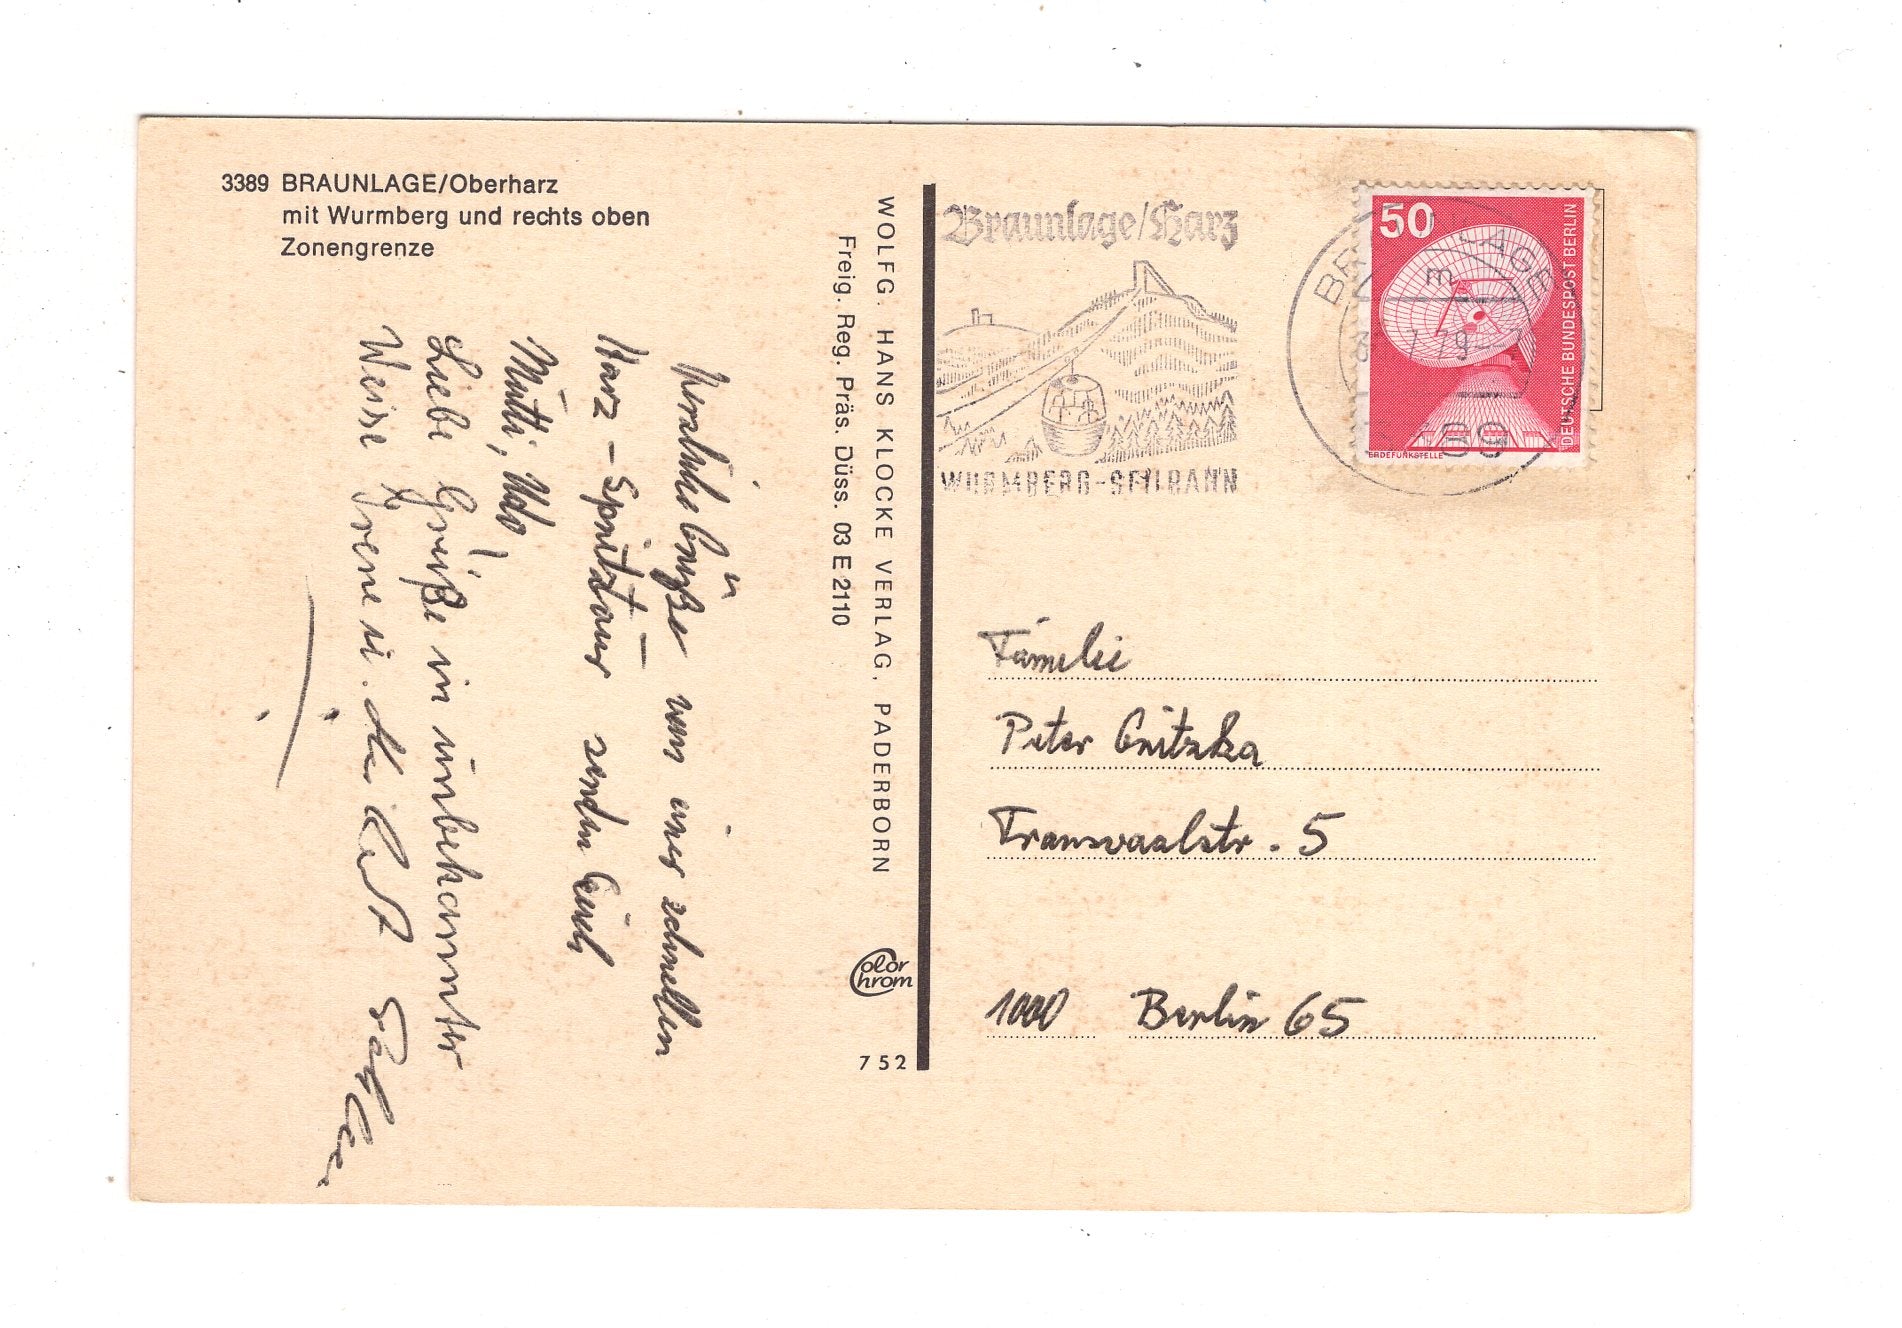 3389 BRAUNLAGE/Oberharz
mit Wurmberg und rechts oben
Zonengrenze
Herzliche Grüße von einer schnellen
Harz – Spritztour senden Euch
Mutti, Udo,
Liebe Grüße in unbekannter
Weise Irene u.
Freig. Reg. Präs. Düss. 03 E 2110
WOLFG. HANS KLOCKE VERLAG, PADERBORN
Color Chrom
752
Braunlage/Harz
WURMBERG-SEILBAHN
BRAUNLAGE
m
7.79
50
DEUTSCHE BUNDESPOST BERLIN
ERDEFUNKSTELLE
Familie
Peter Gnitzka
Transvaalstr. 5
1000 Berlin 65